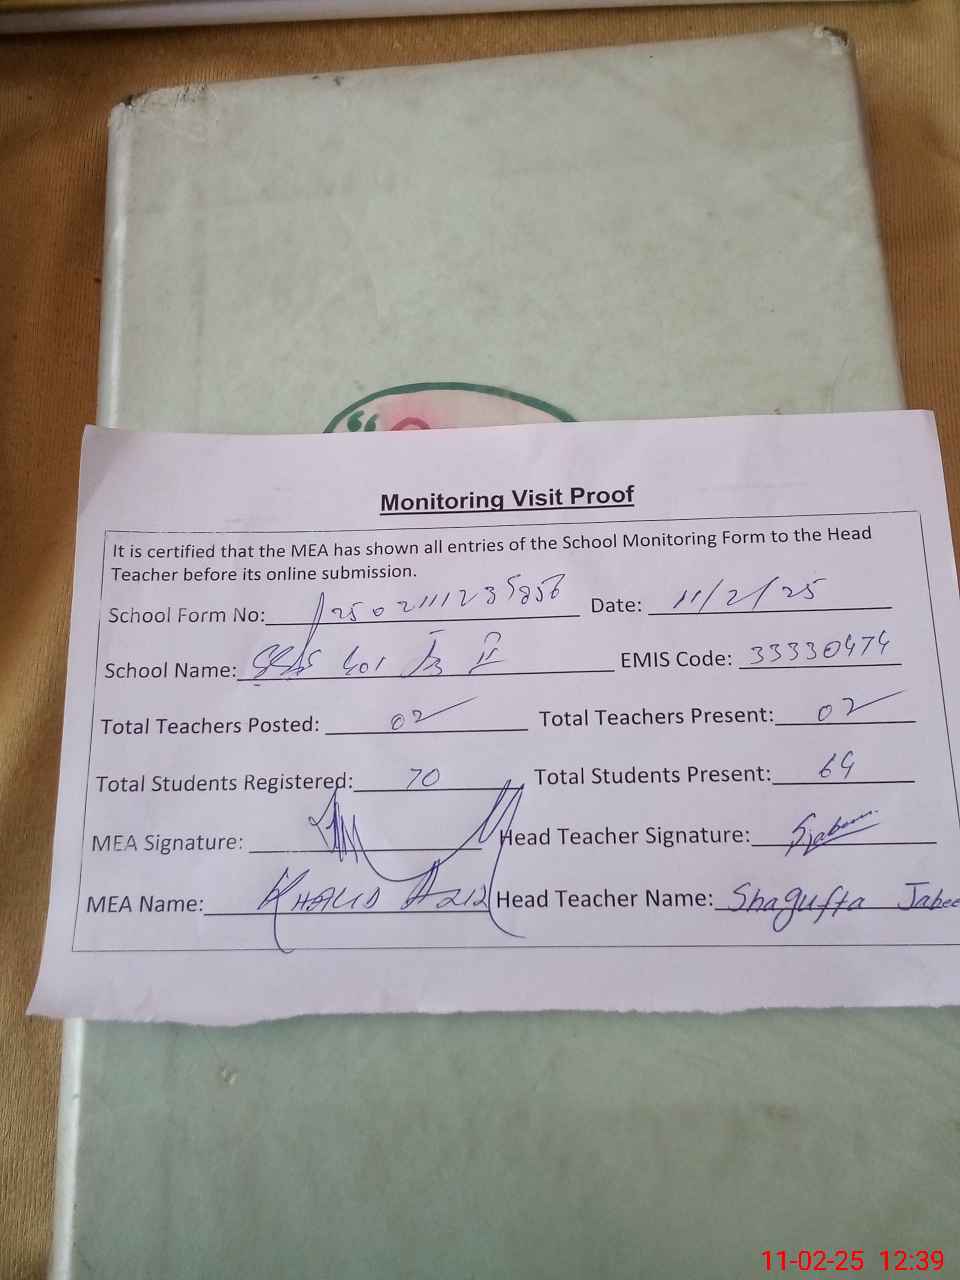 Monitoring Visit Proof
It is certified that the MEA has shown all entries of the School Monitoring Form to the Head
Teacher before its online submission.
School Form No: Date: 11/2/25
School Name: EMIS Code: 33330474
Total Teachers Posted: 02 Total Teachers Present: 02
Total Students Registered: 70 Total Students Present: 69
MEA Signature: Head Teacher Signature:
MEA Name: KHALID AZIZ Head Teacher Name: Shagufta Jabee
11-02-25 12:39